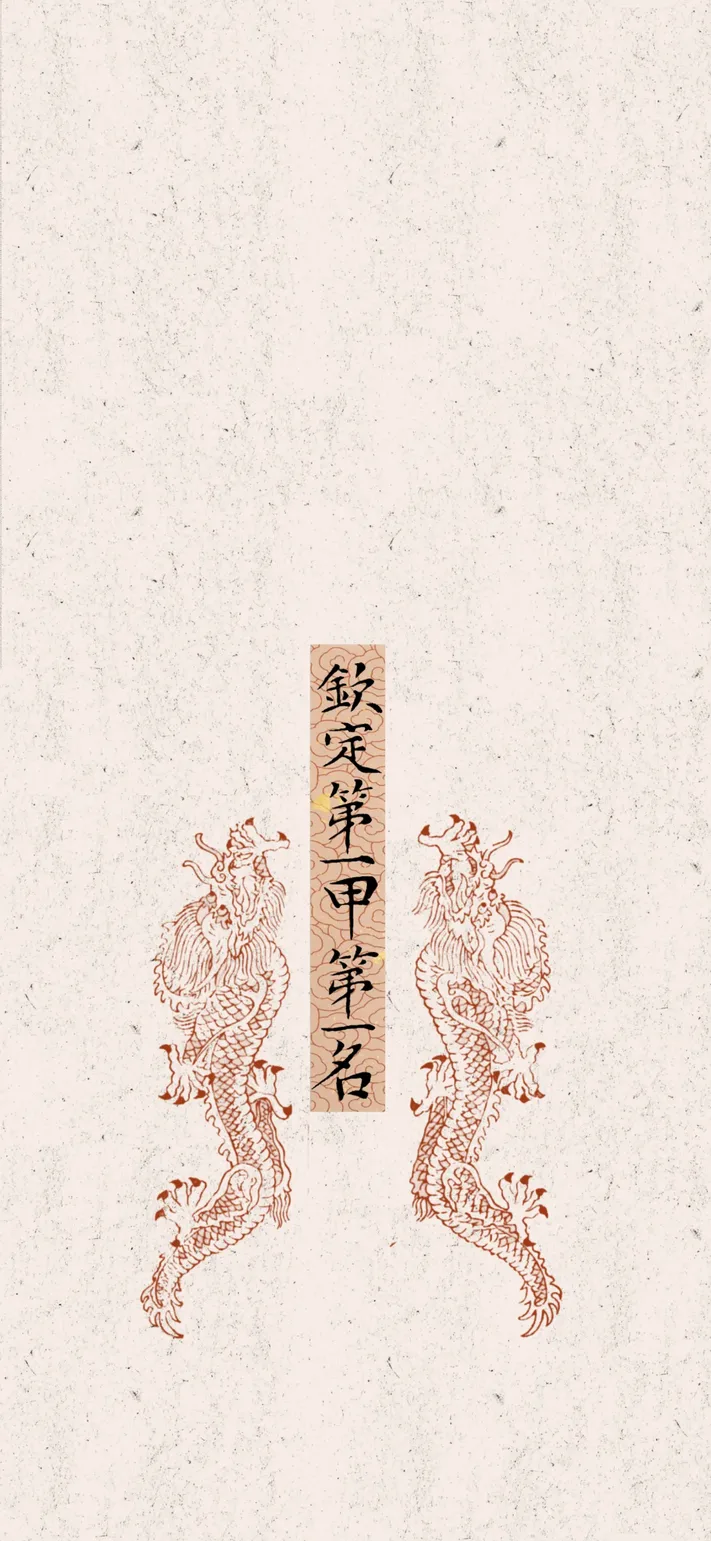 欽定第一甲第一名